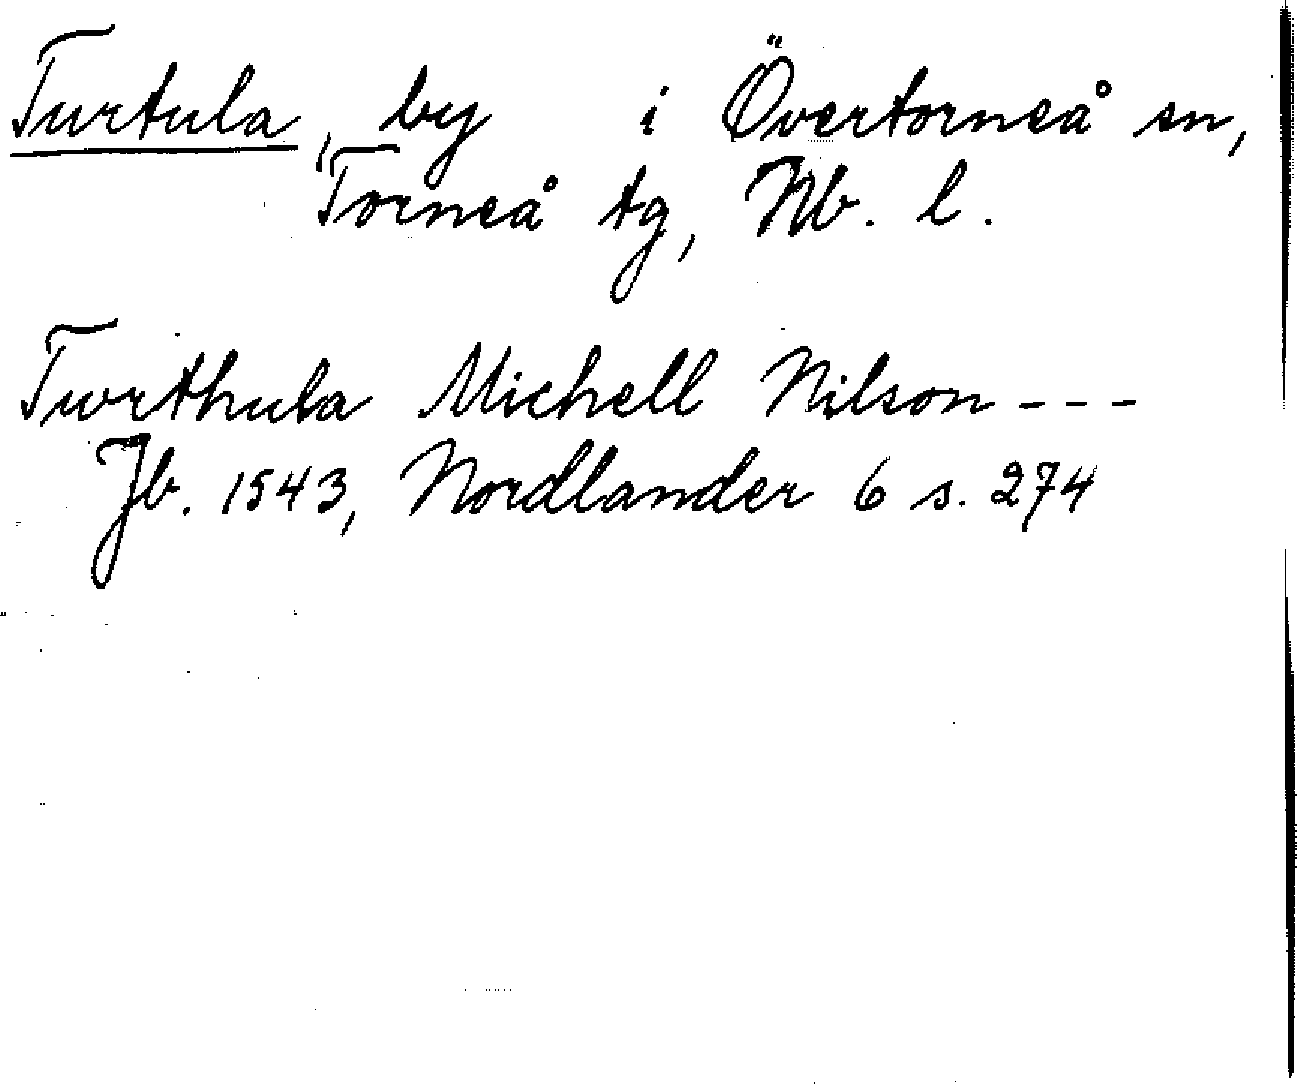 Turtula, by i Övertorneå sn,
Torneå tg, Nb. l.
Turthula Michell Nilson - - -
Jb. 1543, Nordlander 6 s. 274